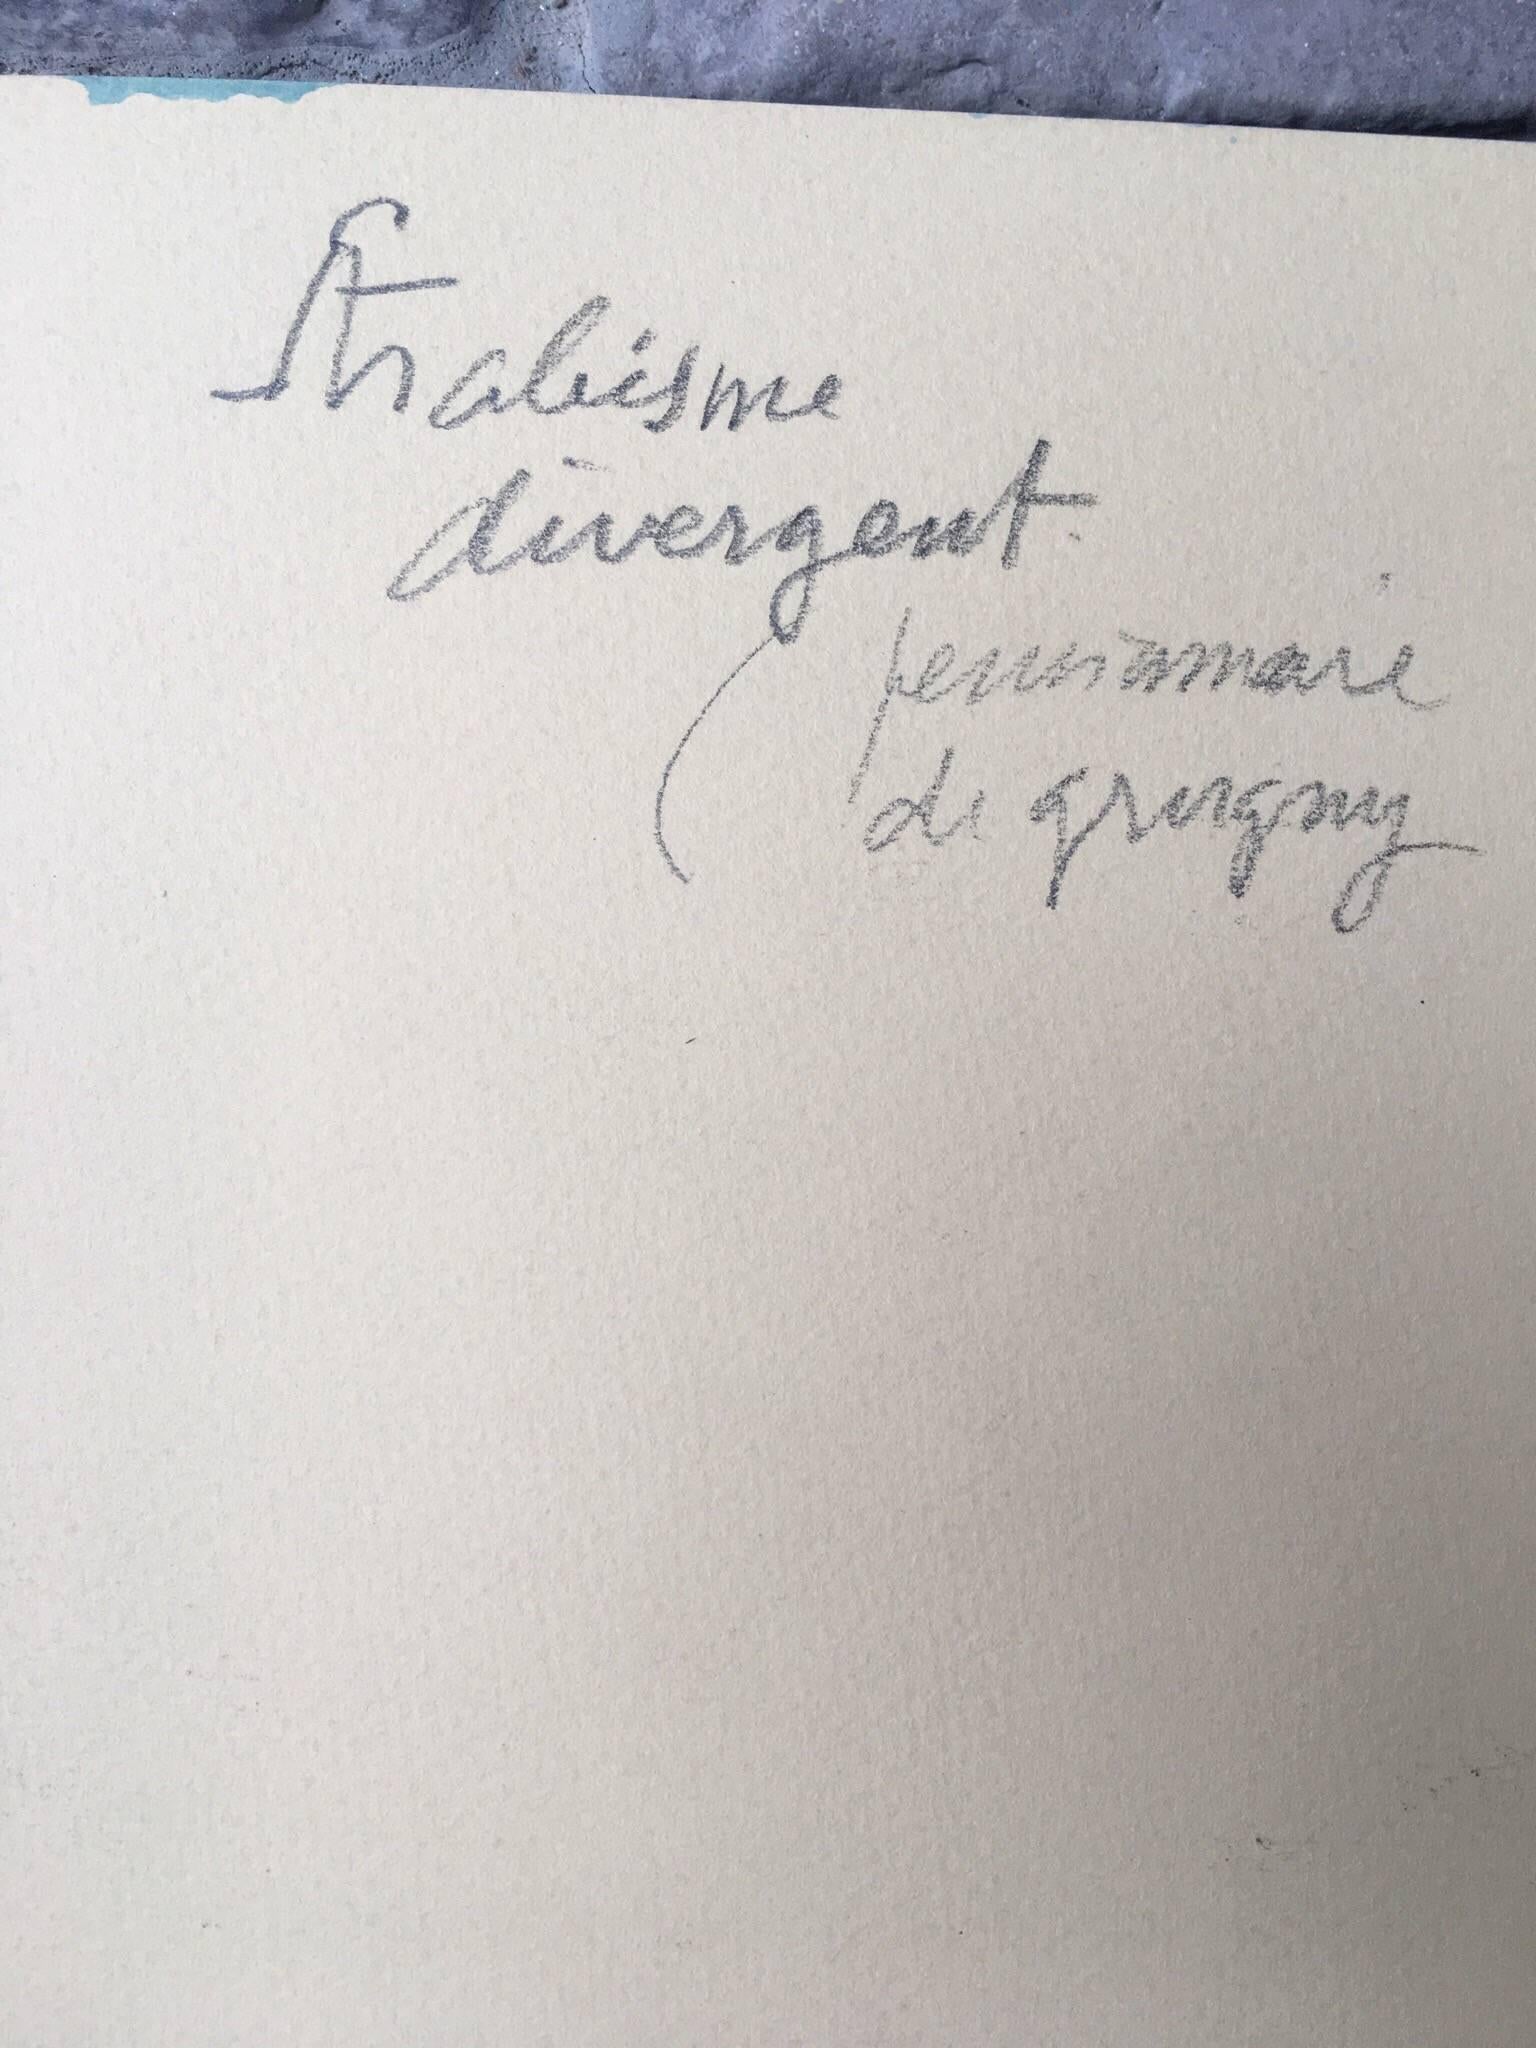 Strabisme
divergent
(pensionnaire
de grugny